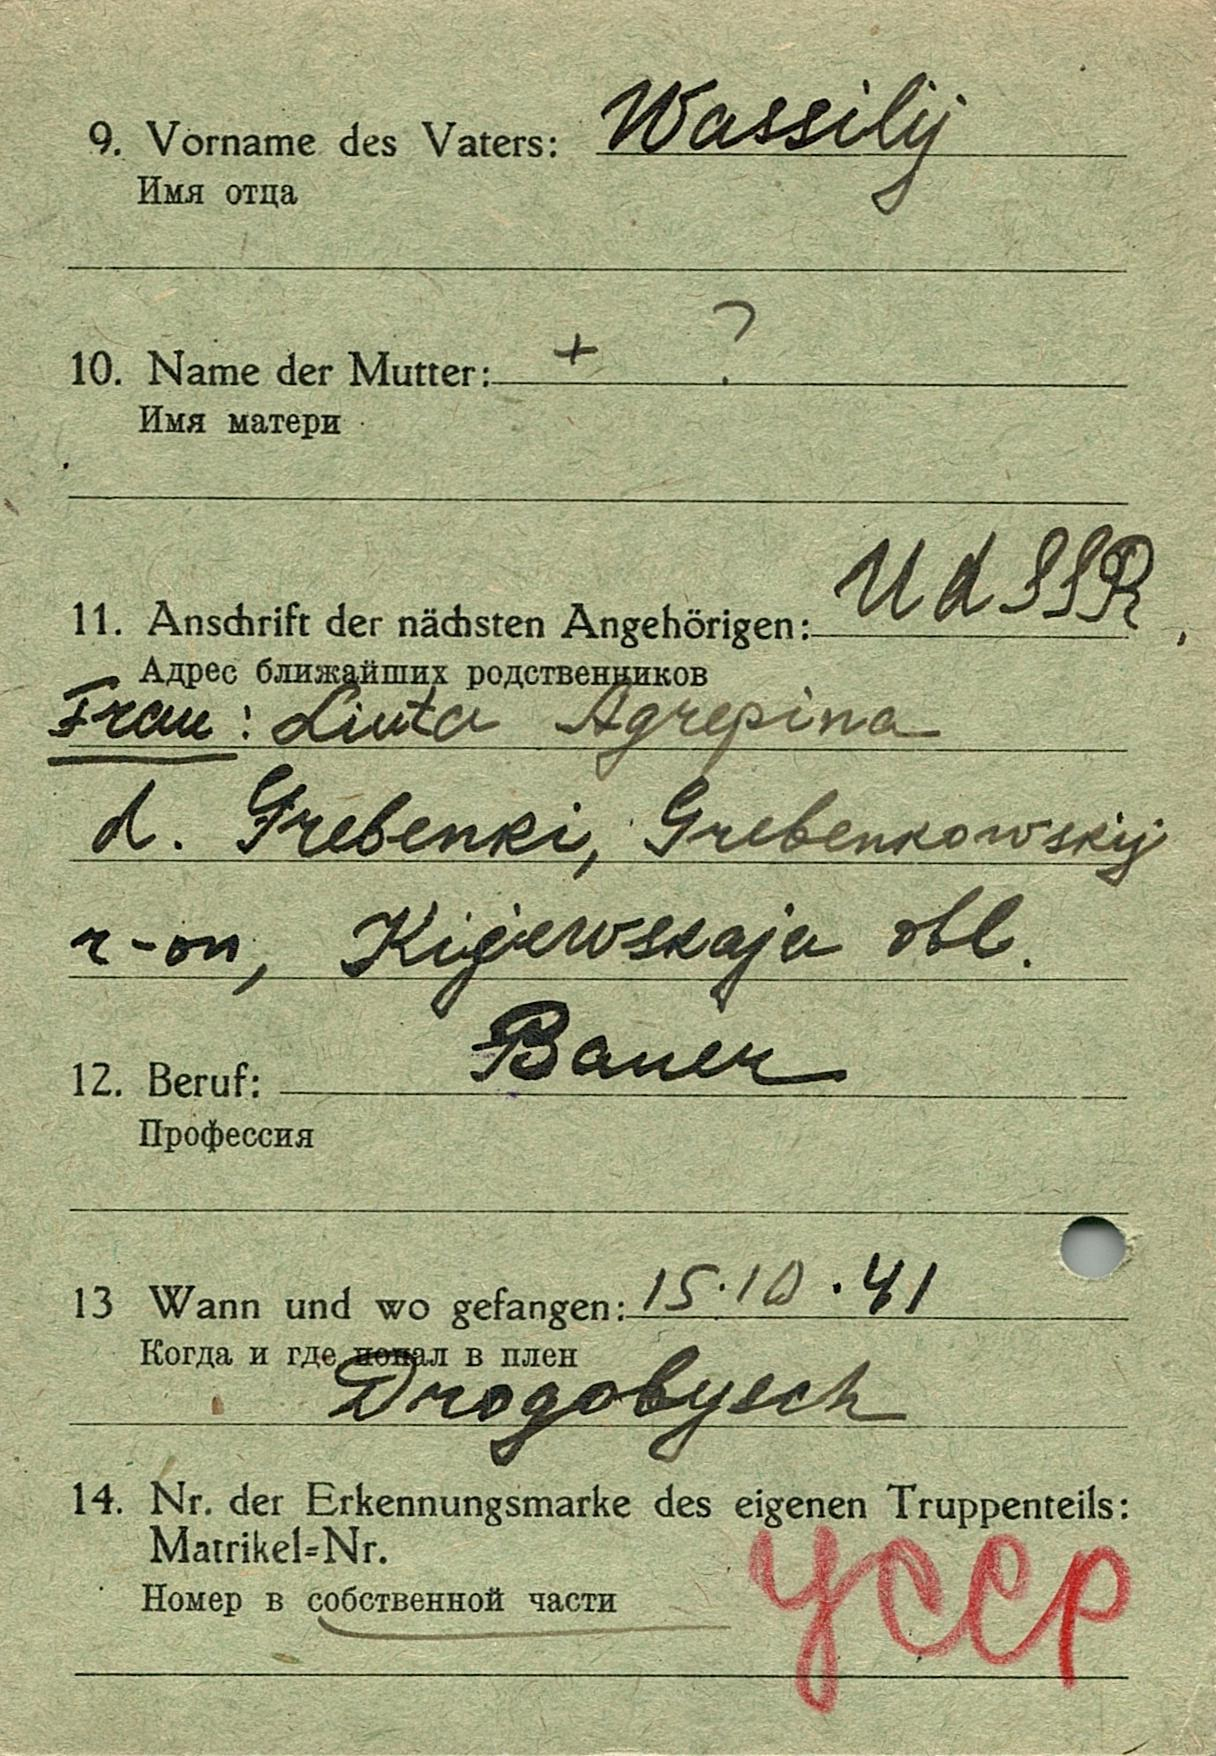 9. Vorname des Vaters: Wassilij
Имя отца
10. Name der Mutter: + ?
Имя матери
11. Anschrift der nächsten Angehörigen: UdSSR,
Адрес ближайших родственников
Frau: Liuta Agrepina
d. Grebenki, Grebenkowskij
r-on, Kijewskaja obl.
12. Beruf: Bauer
Профессия
13 Wann und wo gefangen: 15.10.41
Когда и где попал в плен
Drogobysch
14. Nr. der Erkennungsmarke des eigenen Truppenteils:
Matrikel=Nr.
Номер в собственной части
УССР